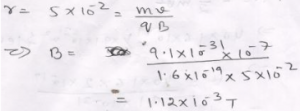 r = 5 × 10⁻² = mv / qB
⇒ B = 9.1×10⁻³¹ × 10⁻⁷ / 1.6×10⁻¹⁹ × 5×10⁻²
= 1.12×10⁻³ T